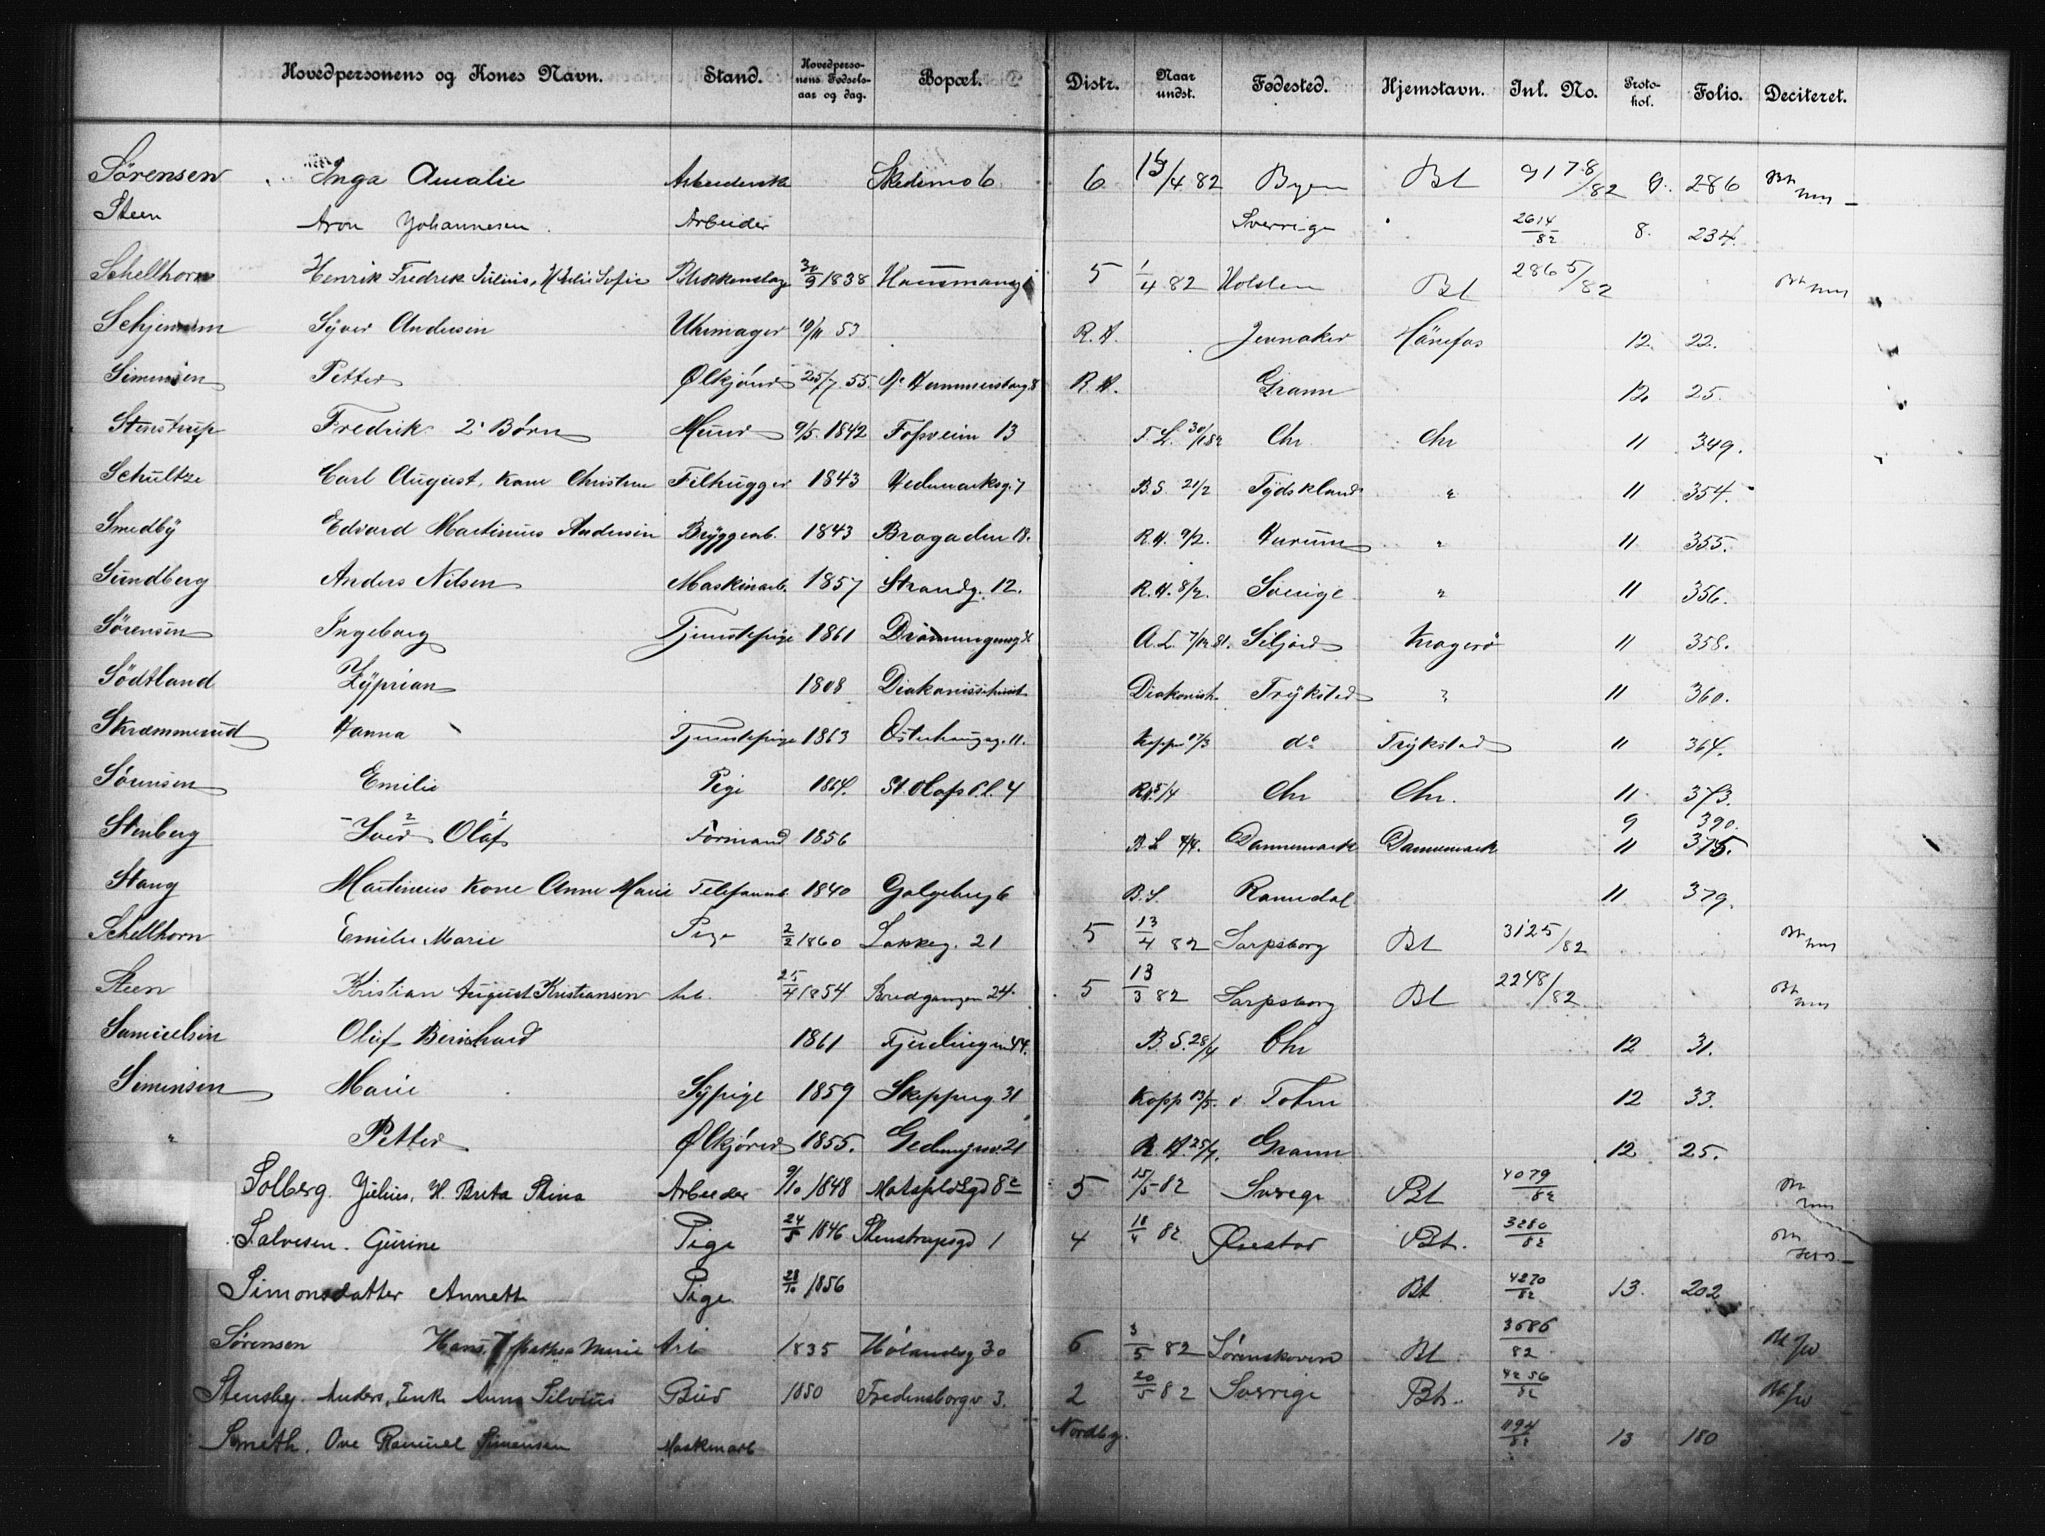 Hovedpersonens og Kones Navn. Stand. Hovedpersonens Fødselsaar og dag. Bopæl. Distr. Naar undst. Fødested. Hjemstavn. Inl. No. Protokol. Folio. Deciteret.
Sørensen Inga Amalie Arbeidersk Skedsmo 6 6 15/4 82 Byen Bt 9178/82 9. 286
Steen Aron Johannesen Arbeider Sverrige 2614/82 8. 234.
Schellhorn Henrik Fredrik Julius, 30/9 1838 5 1/4 82 Holsten Bt 2865/82
Syver Andersen Uhrmager 10/11 53 R. A. Jevnaker Hönefos 12. 22.
Simensen Petter Ølkjører 25/7 55. R. A. Grann 12. 25.
Stenstrup Fredrik 2 Börn Murer 9/5. 1842 Fossveien 13 T. L. 30/1 82 Chr Chr 11 349.
Schultze Carl August, Kone Christine Filhugger 1843 Hedemarksg. 7 B. S. 21/2 Tydskland " 11 354.
Smedby Edvard Martinius Andersen Bryggearb. 1843 Bragaden 18. R. A. 9/2. Hurum " 11 355.
Sundberg Anders Nilsen Maskinarb. 1857 Strandg. 12. R. A. 8/2. Sverige " 11 356.
Sørensen Ingeborg Tjenestepige 1861 A. L. 7/12 81. Siljord Kragerö 11 358.
Södtland Zyprian 1808 Diakonissehuset Diakoniss. Trykstad " 11 360.
Skrammerud Hanna Tjenestepige 1863 Osterhausg. 11. Kopp 17/3 do Trykstad 11 364.
Sørensen Emilie Pige 1864. St. Olafs Pl. 4 5/4 Chr Chr. 11 373.
9 390.
Stenberg Iver Olaf Formand 1856 B. L 4/4. Dannemark Dannemark 11 375.
Stang Martinius Kone Anne Marie 1840 Galgeberg 6 B. S. Romsdal 11 379.
Schellhorn Emilie Marie Pige 2/2 1860 Lakkeg. 21 5 13/4 82 Sarpsborg Bt 3125/82
Steen Kristian August Kristiansen Arb. 25/4 1854 Bredgangen 24 5 13/3 82 Sarpsborg Bt 2248/82
Samuelsen Oluf Bernhard 1861 Fjerdingen 44. B. S. 28/4 Chr 12 31.
Simensen Marie Sypige 1859 Skipperg 31 Kopp 13/5. Toten 12 33.
" Petter Ølkjörer 1855. R. A. 25/4. Grann 12 25.
Solberg. Julius, H. Brita Stina Arbeider 9/10 1848 5 15/5 82 Sverige Bt 4079/82
Salvesen. Gurine Pige 24/8 1846 Stenstrupsgd 1 4 18/4 82 Øiestad Bt. 3280/82
Simonsdatter Annette Pige 28/10 1856 Bt 4270/82 13. 202
Sørensen Hans, Marie Arb 1835 Hölandsg 30 6 3/5 82 Lörenskoven Bt 3686/82
Stensby. Anders, Enk. Anna Silvius Bud 1850 Fredensborgv. 3. 2 20/5 82 Sverige Bt. 4256/82
Smeth. Ove Simensen Maskinarb Nordby. 1194/82 13 180